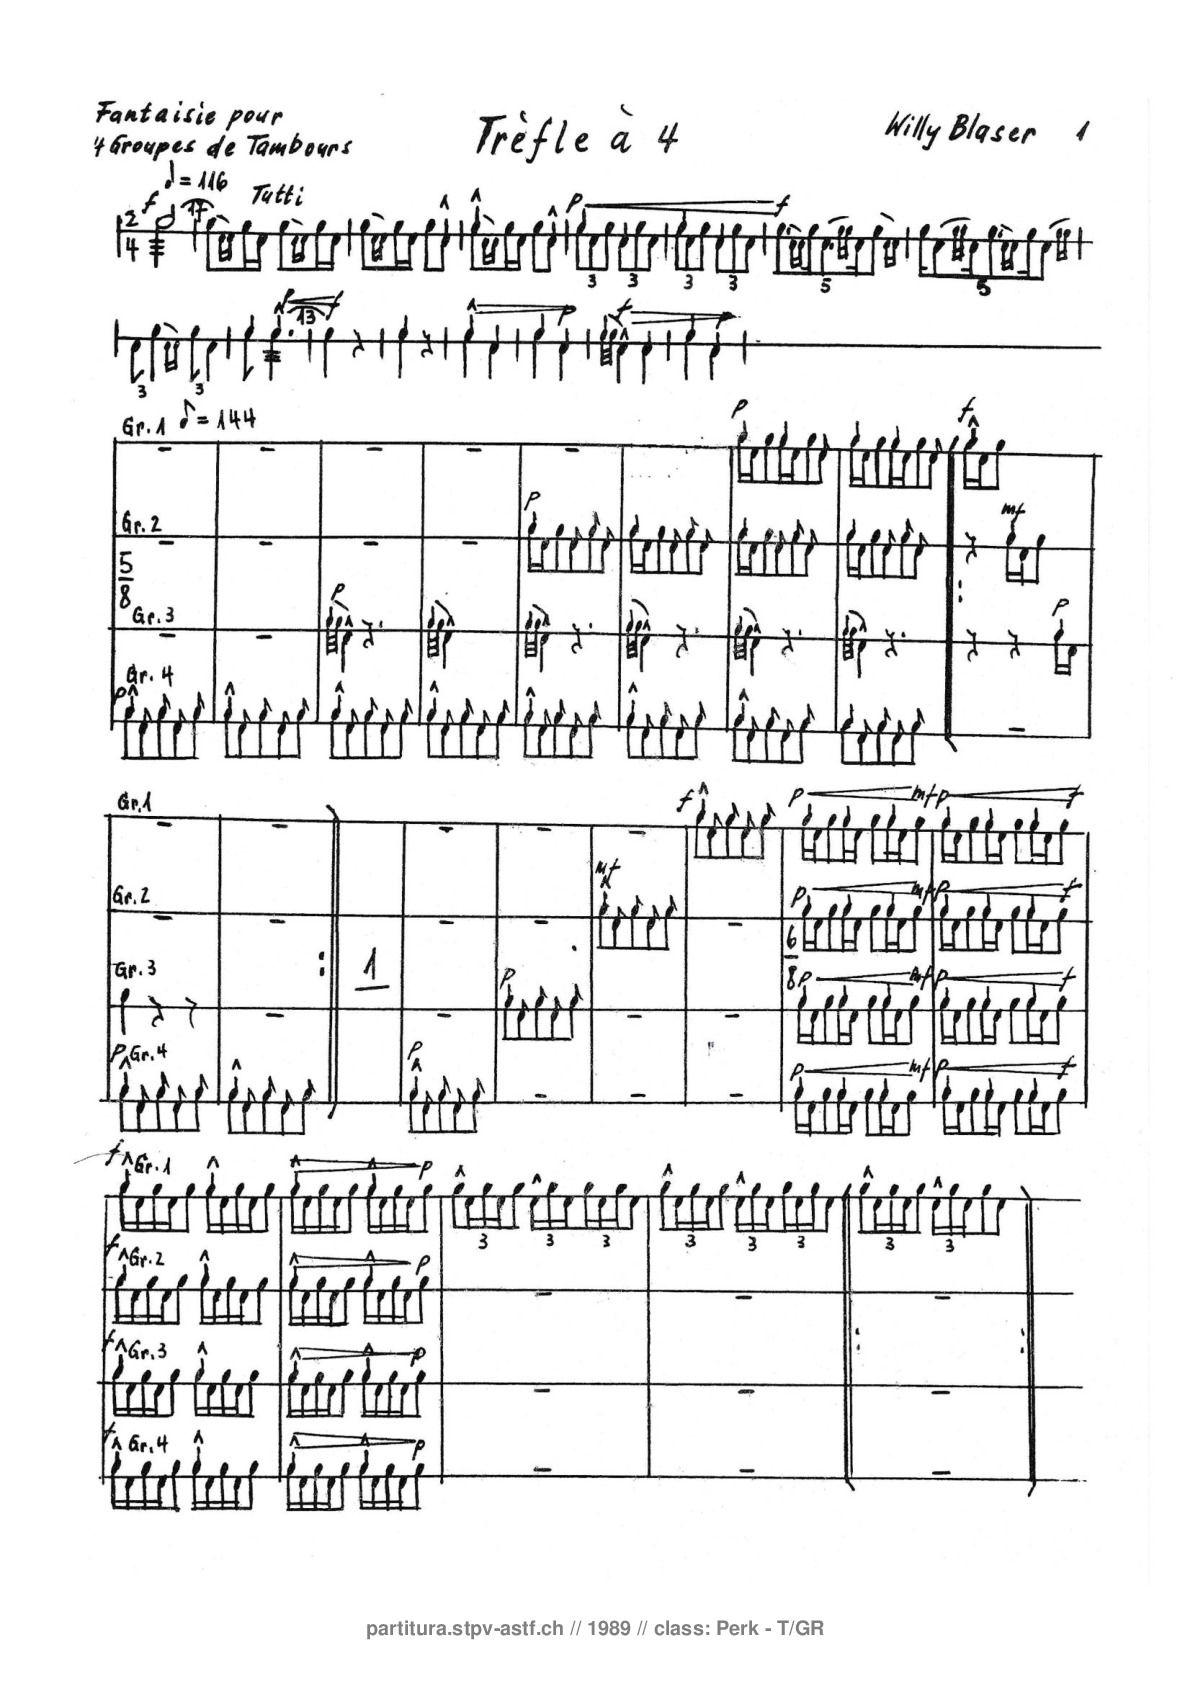 Fantaisie pour
4 Groupes de Tambours
Trèfle à 4
Willy Blaser 1
= 116 Tutti
f 17 p f
2
4
3 3 3 3 5 5
p f 13 p f p
3 3
Gr. 1 = 144 p f
Gr. 2 p mf
5
8
Gr. 3 p p
Gr. 4
p
Gr. 1 f p mf p f
Gr. 2 mf p mf p f
6
8
Gr. 3 1 p p mf p f
p Gr. 4 p p mf p f
f Gr. 1 p
3 3 3 3 3 3 3 3
f Gr. 2 p
f Gr. 3 p
f Gr. 4 p
partitura.stpv-astf.ch // 1989 // class: Perk - T/GR